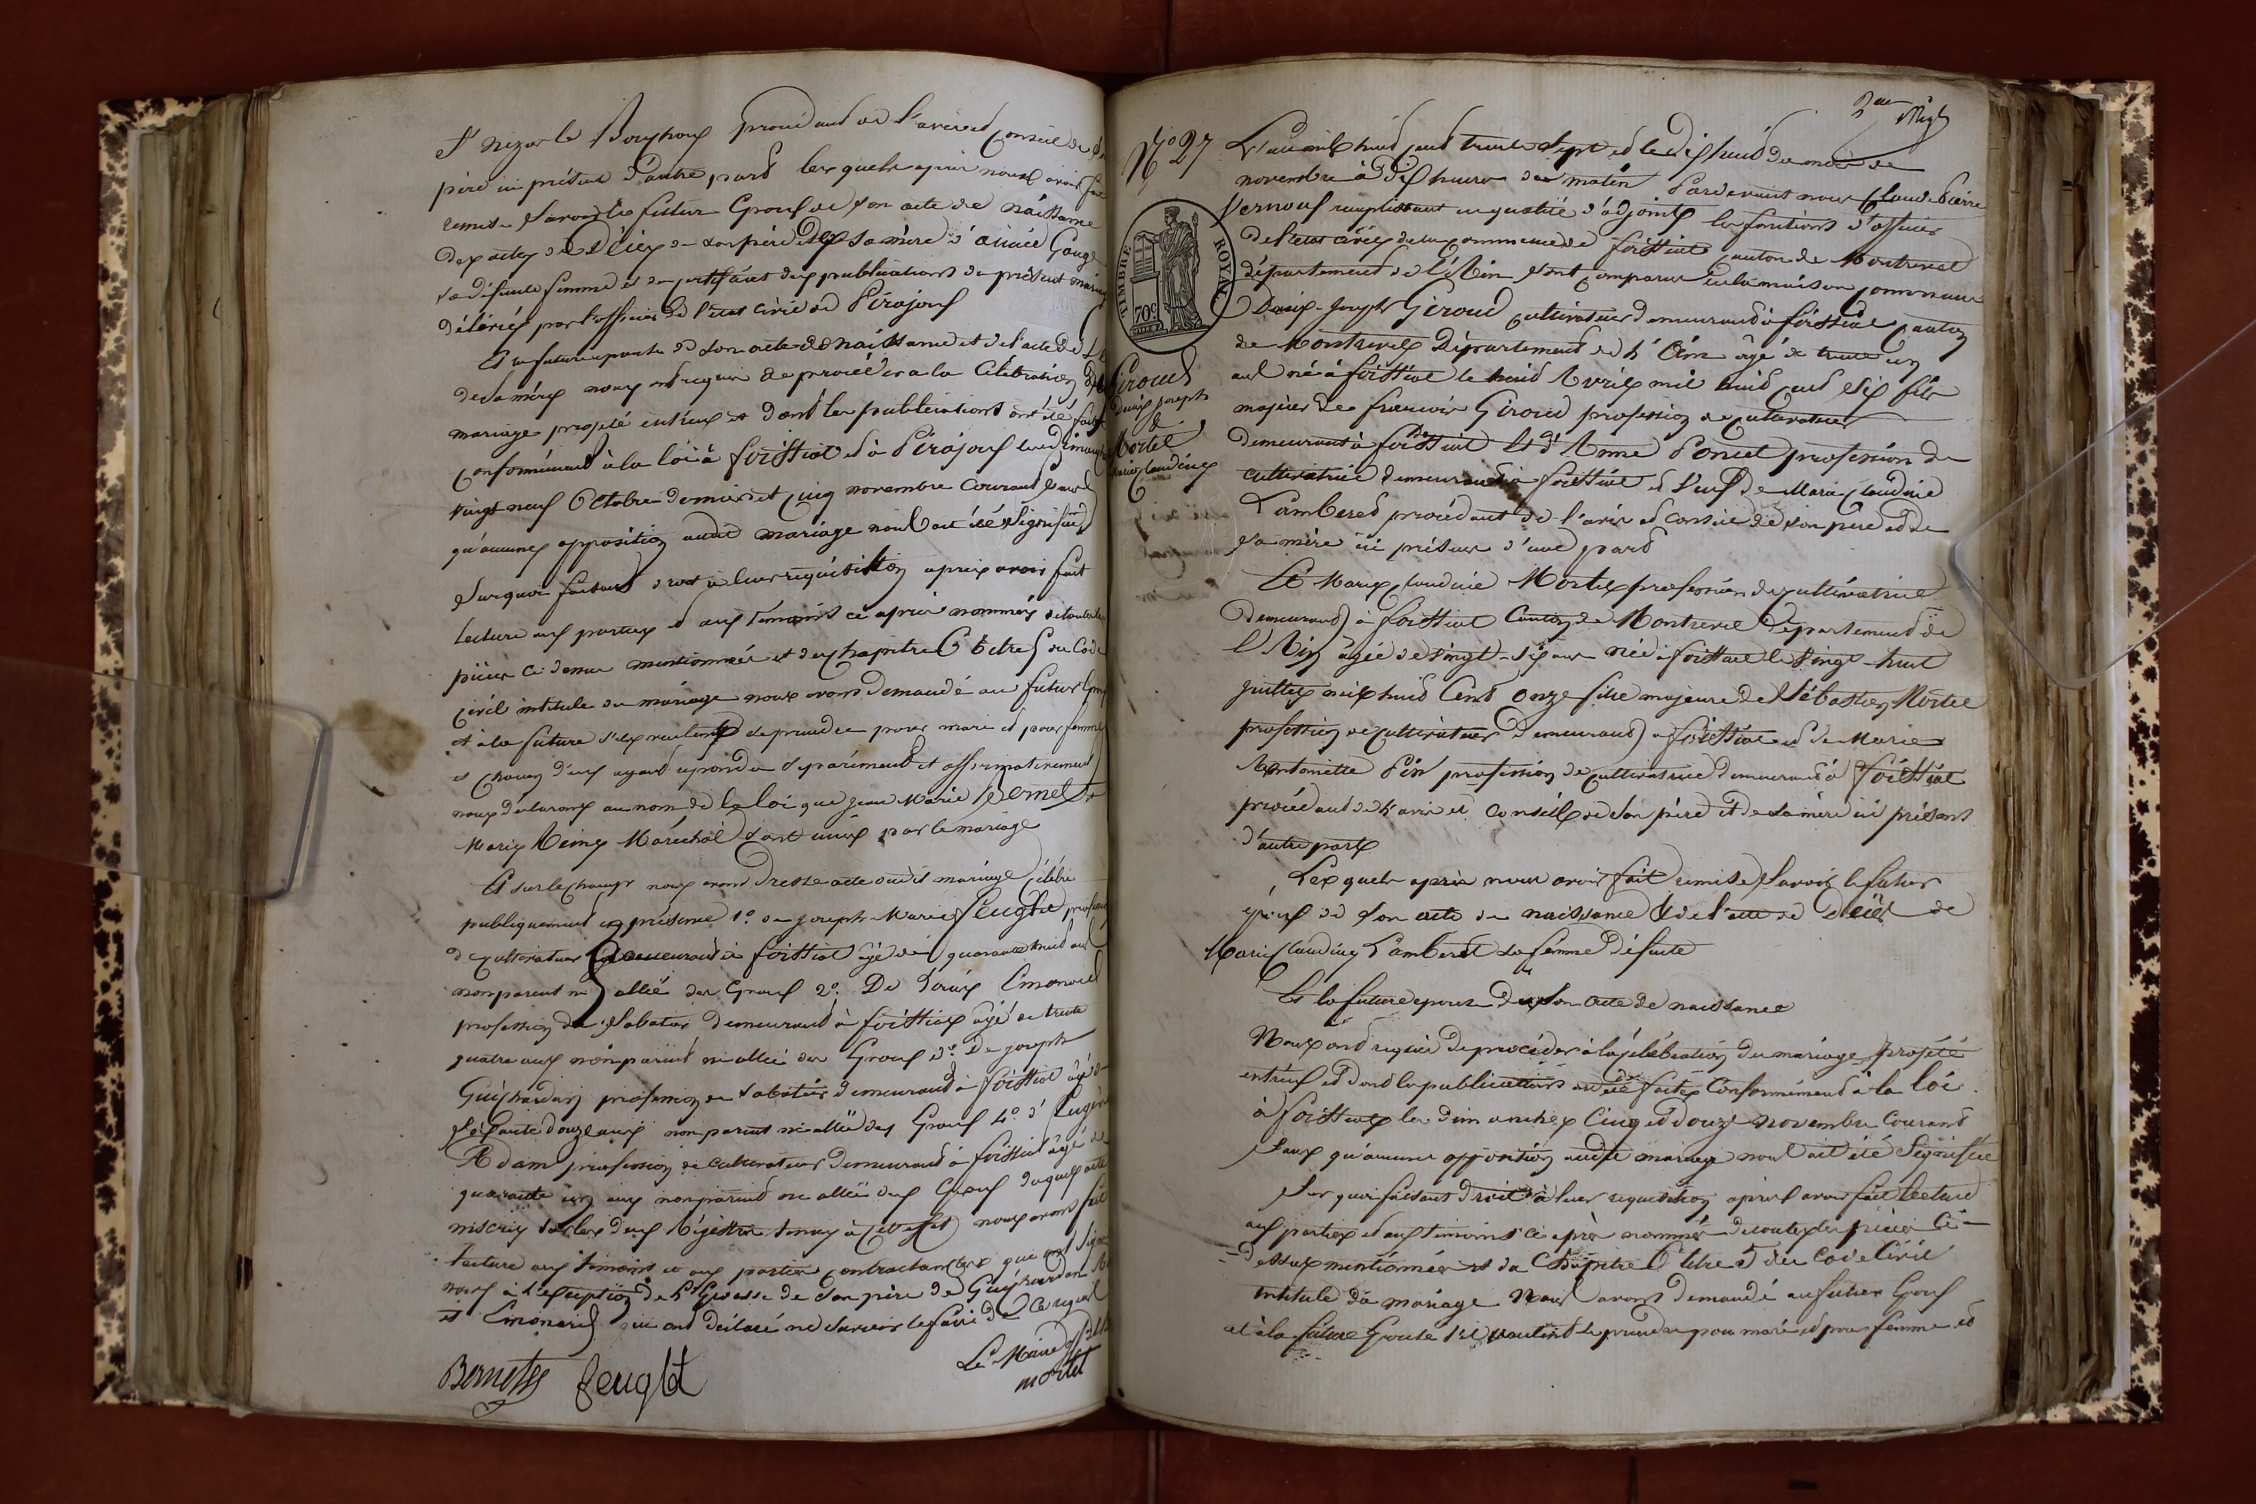 St Nizier le Bouchoux procédant de l'avis et conseil de
père ici présent d'autre part lesquels après nous avoir fait
remise savoir le futur Epoux de son acte de naissance
des actes de Décès de son père de sa mère d'
sa défunte femme et de certificat des publications du présent mariage
délivré par l'officier de l'état civil de Pirajoux
Et la future epouse de son acte de naissance et de l'acte de
de sa mère nous ont requis de procéder a la Célébration du
mariage projeté entreux et dont les publications ont été faites
Conformément à la loi à foissiat et à Pirajoux les Dimanches
vingt neuf Octobre dernier et cinq novembre courant sans
qu'aucune opposition audit mariage nous ait été Signifiée
Surquoi faisant droit à leur requisition après avoir fait
lecture aux parties et aux témoins ci après nommés de toutes les
pièces ci dessus mentionnées et du chapitre 6 titre 5 du Code
Civil intitulé du mariage nous avons demandé au futur Epoux
et à la future s'ils veulent se prendre pour mari et pour femme
et chacun d'eux ayant répondu séparément et affirmativement
nous déclarons au nom de la loi que jean Marie Bernet et
Marie Reine Maréchal sont unis par le mariage
Et sur le champ nous avons Dressé acte dudit mariage Célébré
publiquement en présence 1° de joseph Marie feuglet profession
de cultivateur demeurant à foissiat agé de quarante huit ans
non parent ni allié des Epoux 2° De Emonard
profession de Sabotier demeurant à foissiat âgé de trente
quatre ans non parent ni allié des Epoux 3° De joseph
Guichardan profession de Sabotier demeurant à foissiat âgé de
Soixante douze ans non parent ni allié des Epoux 4° d' Eugène
Adam profession de cultivateur demeurant à foissiat âgé de
quarante un ans non parent ni allié des Epoux duquel acte
inscrit sur les deux Régistres tenus à cet effet nous avons fait
lecture aux témoins et aux parties contractantes qui ont signé
nous à l'exception de l'Epouse de son père de Guichardan
et Emonard qui ont déclaré ne savoir le faire de ce requis
Bernet feuglet
Le Maire
mortel
N° 27
TIMBRE ROYAL
70c
Giroud
Denis joseph
&
Mortel
Marie Claudine
L'an mil huit cent trente Sept et le Dix huit du mois de
novembre à Dix heures du matin Pardevant nous Claude Pierre
Vernoux remplissant en qualité d'adjoint les fonctions d'officier
de l'état civil de la commune de foissiat canton de Montrevel
département de l'Ain sont comparus en la maison commune
Denis-joseph Giroud cultivateur demeurant à foissiat canton
de Montrevel Département de l'Ain âgé de trente un
ans né à foissiat le huit Avril mil huit cent Six fils
majeur de francois Giroud profession de cultivateur
Demeurant à foissiat Et d'Anne Poncet profession de
cultivatrice demeurant à foissiat et Veuf de Marie Claudine
Lamberet procédant de l'avis et conseil de son père et de
sa mère ici présens d'une part
Et Marie Claudine Mortel profession de cultivatrice
Demeurant à foissiat Canton de Montrevel Département de
l'Ain âgée de vingt-six ans née à foissiat le vingt-huit
juillet mil huit Cent onze fille majeure de Sébastien Mortel
profession de cultivateur Demeurant à foissiat et de Marie
Antoinette Pin profession de cultivatrice Demeurant à foissiat
procédant de l'avis et conseil de son père et de sa mère ici présens
d'autre part
Lesquels après nous avoir fait remise savoir le futur
époux de son acte de naissance & de l'acte de Décès de
Marie Claudine Lamberet sa femme Défunte
Et la future epouse de son Acte de naissance
Nous ont requis de procéder à la célébration du mariage projeté
entreux et dont les publications ont été faites Conformément à la loi
à foissiat les dimanches Cinq et douze novembre courant
Sans qu'aucune opposition audit mariage nous ait été Signifiée
Sur quoi faisant Droit à leur requisition après avoir fait lecture
aux parties et aux témoins ci après nommés de toutes les pièces Ci-
dessus mentionnées et du Chapitre 6 titre 5 du code Civil
intitulé du mariage Nous avons demandé au futur Epoux
et à la future Epouse s'ils veulent se prendre pour mari et pour femme et